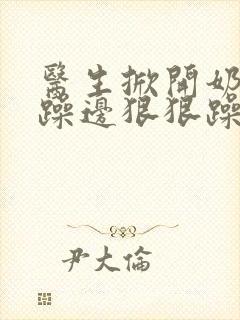 醫生掀開奶
躁邊狠狠躁
尹大倫